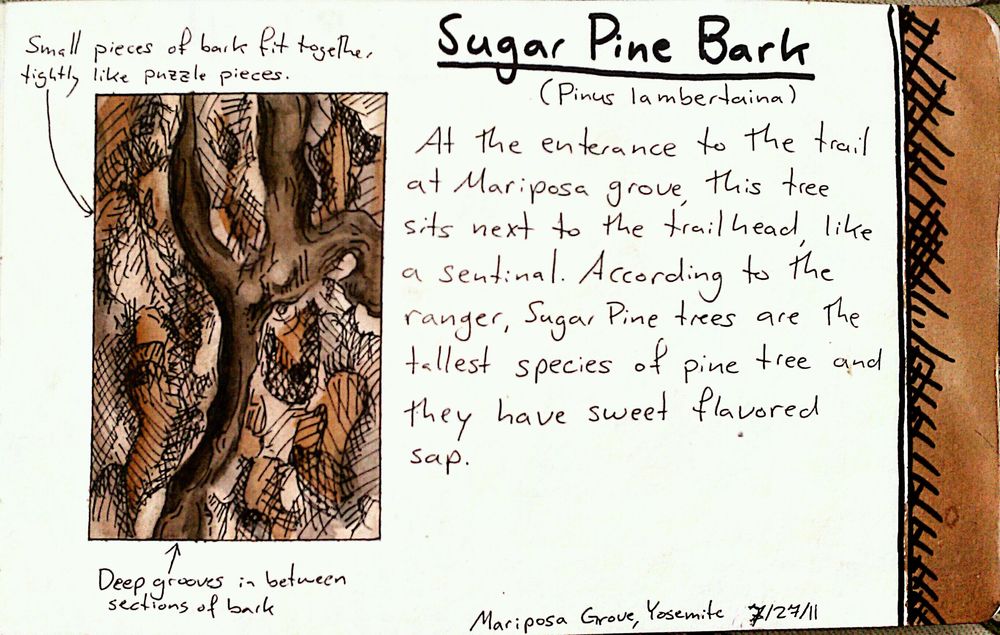 Small pieces of bark fit together
tightly like puzzle pieces.
Sugar Pine Bark
(Pinus lambertaina)
At the enterance to the trail
at Mariposa grove, this tree
sits next to the trailhead, like
a sentinal. According to the
ranger, Sugar Pine trees are the
tallest species of pine tree and
they have sweet flavored
sap.
Deep grooves in between
sections of bark
Mariposa Grove, Yosemite 7/27/11